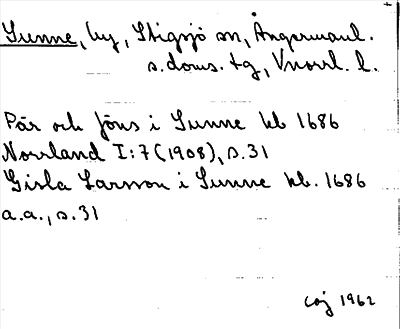 Sunne, by, Stigsjö sn, Ångermanl.
s. doms. tg, Vnorrl. l.
Pär och Jöns i Sunne hb 1686
Norrland I:7 (1908), s. 31
Gisla Larsson i Sunne hb. 1686
a.a., s. 31
1962